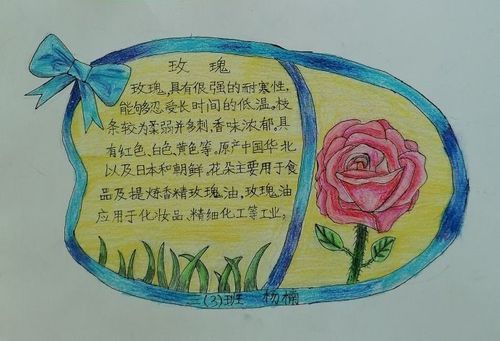 玫 瑰
玫瑰,具有很强的耐寒性,
能够忍受长时间的低温。枝
条较为柔弱并多刺,香味浓郁。具
有红色、白色、黄色等。原产中国华北
以及日本和朝鲜。花朵主要用于食
品及提炼香精玫瑰油,玫瑰油
应用于化妆品、精细化工等工业。
三(3)班 杨楠